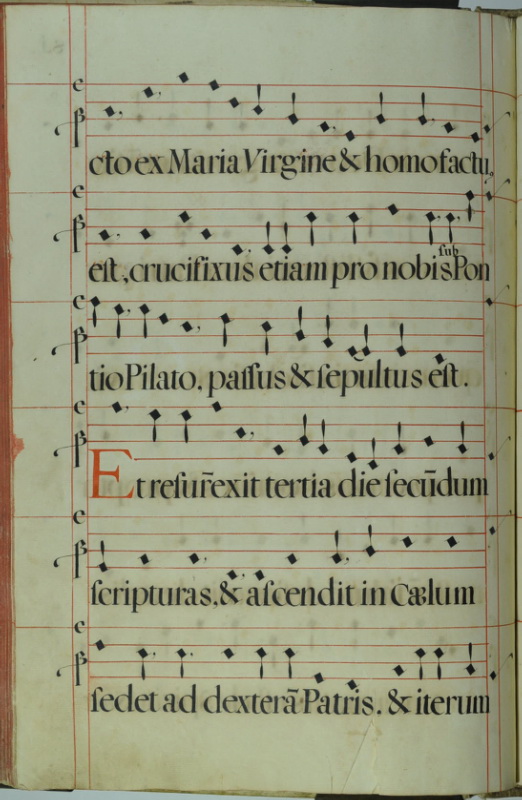 cto ex Maria Virgine & homo factu
est, crucifixus etiam pro nobis sub Pon
tio Pilato, passus & sepultus est.
Et resur̃exit tertia die secūdum
scripturas, & ascendit in Cælum
sedet ad dexterã Patris. & iterum